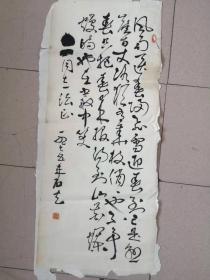 风雨送春归飞雪迎春到已是悬
崖百丈冰犹有花枝俏俏也不争
春只把春来报待到山花烂
漫时她在丛中笑
同志法正